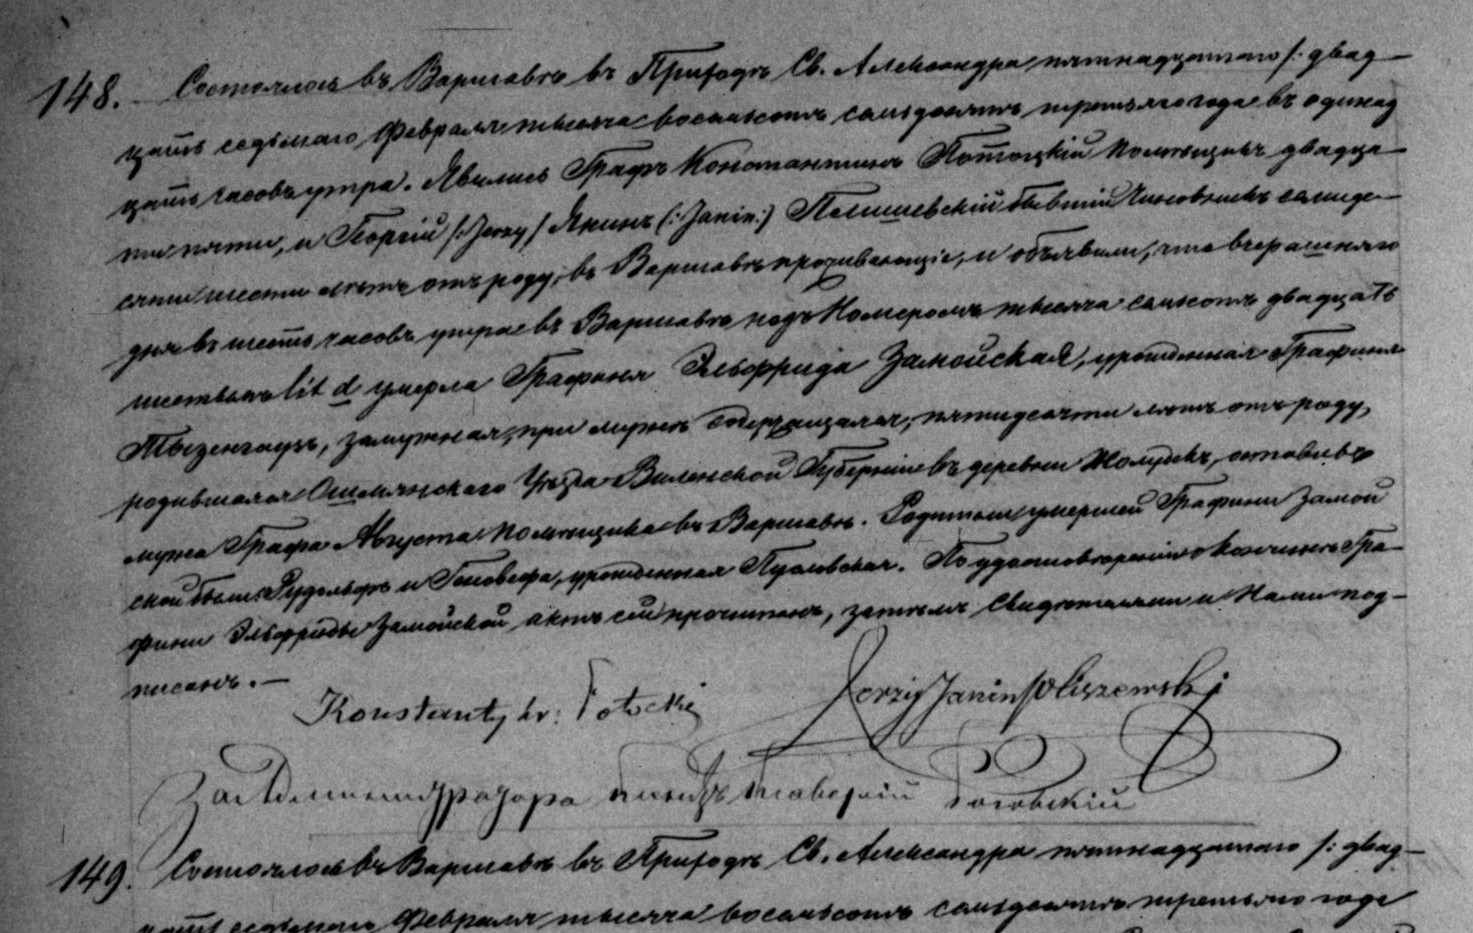 148. Состоялось въ Варшавѣ въ Приходѣ Св. Александра пятнадцатаго /: двад-
цать седьмаго Февраля тысяча восемьсотъ семьдесятъ третьяго года въ одинад
цать часовъ утра. Явились Графъ Константинъ Потоцкій помѣщикъ двадца-
ти пяти, и Георгій /:Jerzy/ Янинъ (:Janin:) Пелишевскій бывшій Чиновникъ семиде-
сяти шести лѣтъ отъ роду, въ Варшавѣ проживающіе, и объявили, что вчерашняго
дня въ шесть часовъ утра въ Варшавѣ подъ Номеромъ тысяча семьсотъ двадцать
шестымъ lit d умерла Графиня Эльфрида Замойская, урожденная Графиня
Тызенгаузъ, замужняя, при мужѣ содержащаяся, пятидесяти лѣтъ отъ роду,
родившаяся Ошмянскаго Уѣзда Виленской Губерніи въ деревни Жолудекъ, оставивъ
мужа Графа Августа помѣщика въ Варшавѣ. Родители умершей Графини Замой
ской были: Рудольфъ и Геновефа, урожденная Пусловская. По удостовѣреніи о кончинѣ Гра-
фини Эльфриды Замойской актъ сей прочитанъ, затѣмъ Свидѣтелями и Нами под-
писанъ.—
Konstanty hr: Potocki Jerzy Janin Peliszewski
За Администратора Ксендзъ
149. Состоялось въ Варшавѣ въ Приходѣ Св. Александра пятнадцатаго /: двад-
цать седьмаго Февраля тысяча восемьсотъ семьдесятъ третьяго года